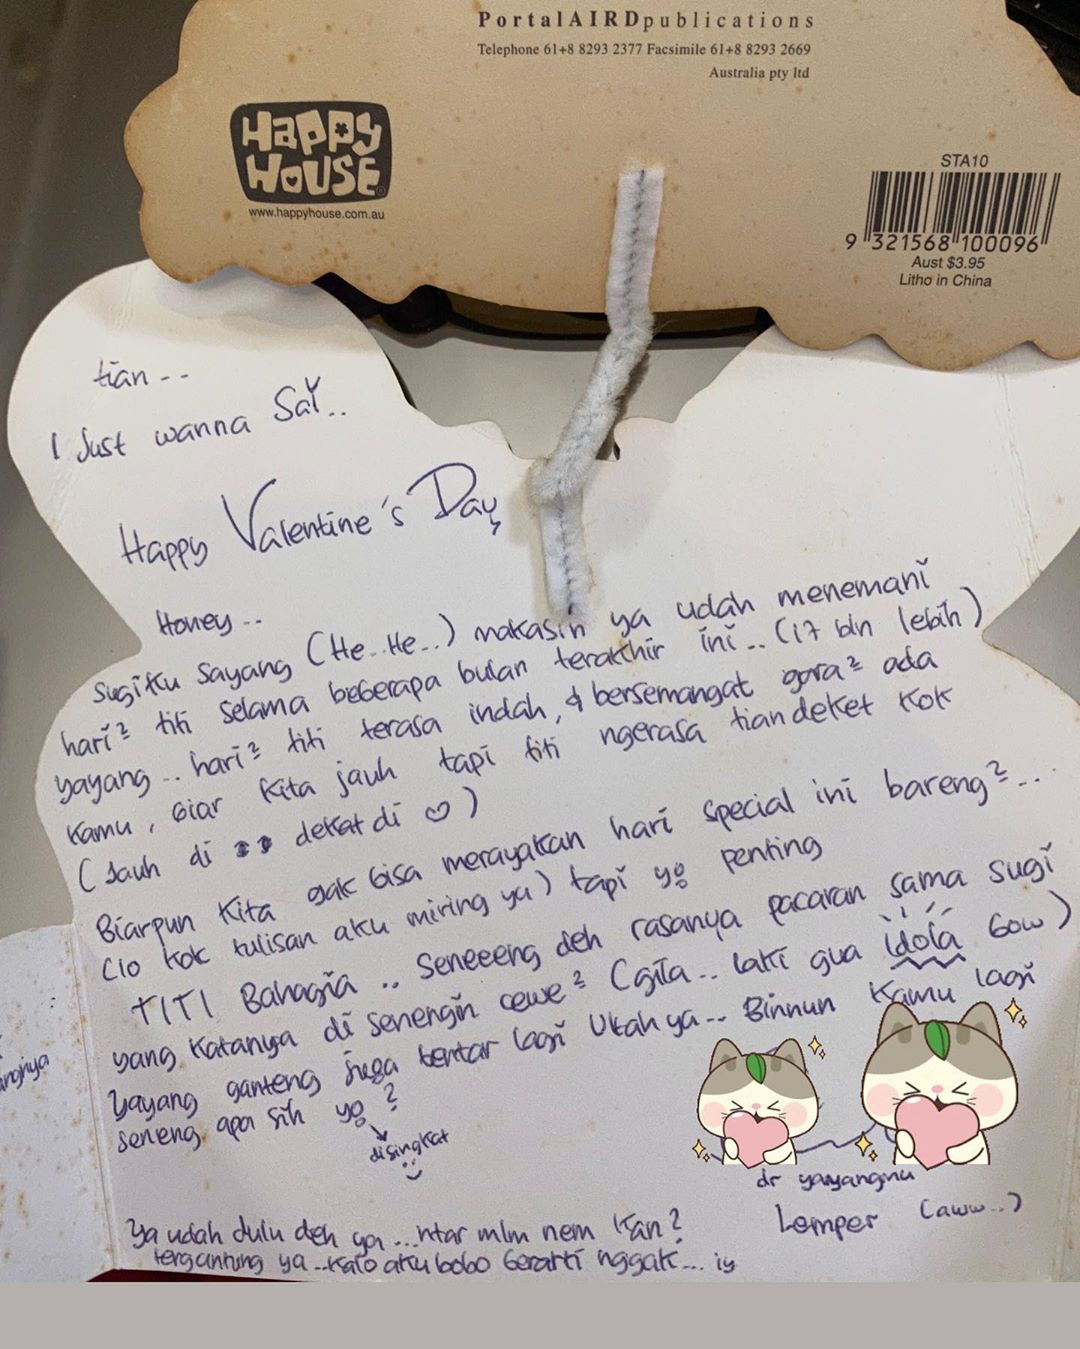 PortalAIRDpublications
Telephone 61+8 8293 2377 Facsimile 61+8 8293 2669
Australia pty ltd
HAPPY
HOUSE
www.happyhouse.com.au
STA10
9 321568 100096
Aust $3.95
Litho in China
tian --
I Just wanna SaY..
Happy Valentine's Day,
Honey..
Sugiku sayang (He..He..) makasih ya udah menemani
hari² titi selama beberapa bulan terakhir ini.. (17 bln lebih)
yayang.. hari² titi terasa indah, & bersemangat gara² ada
kamu, biar kita jauh tapi titi ngerasa tian deket kok
(Jauh di 👀 dekat di ♡)
Biarpun kita gak bisa merayakan hari special ini bareng²...
(lo kok tulisan aku miring ya) tapi yg penting
TITI Bahagia.. seneeeng deh rasanya pacaran sama sugi
yang katanya di senengin cewe² (gila.. laki gua idola bow)
Yayang ganteng juga bentar lagi Ultah ya.. Binnun kamu lagi
seneng apa sih yg?
disingkat
dr yayangmu
Lemper (aww..)
Ya udah dulu deh ya...ntar mlm nem kan?
tergantung ya..kalo aku bobo berarti nggak...
angnya